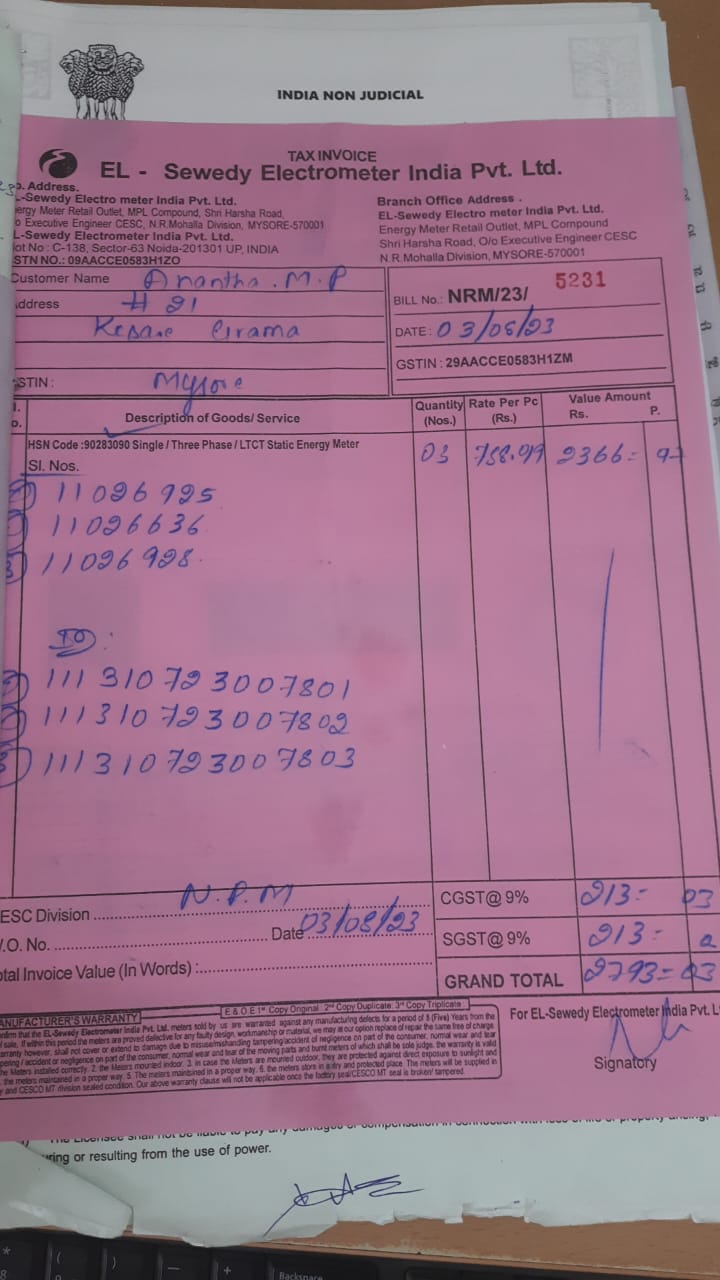 INDIA NON JUDICIAL
TAX INVOICE
EL - Sewedy Electrometer India Pvt. Ltd.
Address.
-Sewedy Electro meter India Pvt. Ltd.
ergy Meter Retail Outlet, MPL Compound, Shri Harsha Road,
o Executive Engineer CESC, N.R.Mohalla Division, MYSORE-570001
L-Sewedy Electrometer India Pvt. Ltd.
lot No : C-138, Sector-63 Noida-201301 UP, INDIA
STN NO.: 09AACCE0583H1ZO
Branch Office Address .
EL-Sewedy Electro meter India Pvt. Ltd.
Energy Meter Retail Outlet, MPL Compound
Shri Harsha Road, O/o Executive Engineer CESC
N.R.Mohalla Division, MYSORE-570001
Customer Name Anantha . M. P
ddress # 21
Kesare Grama
STIN : Mysore
BILL No.: NRM/23/ 5231
DATE : 03/08/23
GSTIN : 29AACCE0583H1ZM
Description of Goods/ Service
Quantity (Nos.)
Rate Per Pc (Rs.)
Value Amount
Rs. P.
HSN Code :90283090 Single / Three Phase / LTCT Static Energy Meter
03 2366=
Sl. Nos.
11026925
11026636
11026928
TO :
111310723007801
111310723007802
111310723007803
ESC Division N.P.M
.O. No. Date 03/08/23
tal Invoice Value (In Words) :
CGST@ 9% 213= 03
SGST@ 9% 213=
GRAND TOTAL 2793=03
E & O.E 1st Copy Original : 2nd Copy Duplicate: 3rd Copy Triplicate
ANUFACTURER'S WARRANTY
For EL-Sewedy Electrometer India Pvt. L
Signatory
uring or resulting from the use of power.
Backspace